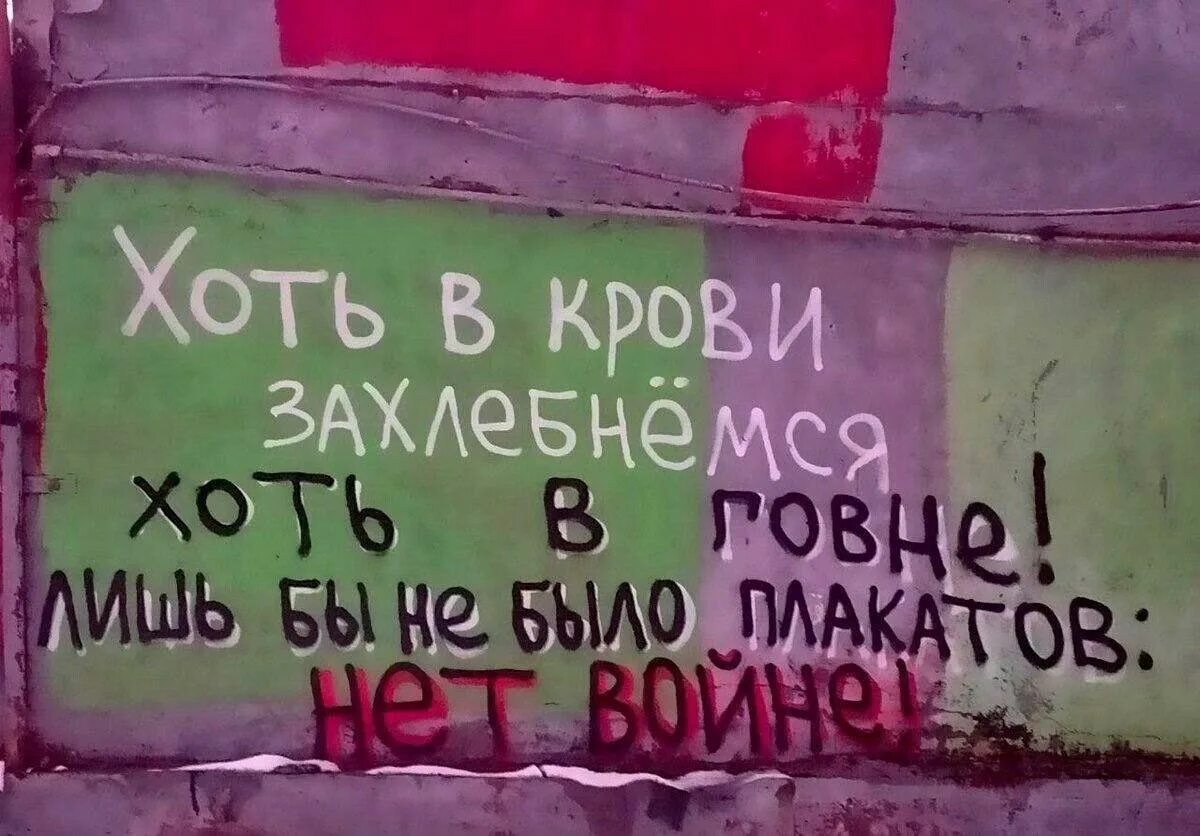 Хоть в крови
захлебнёмся
хоть в говне!
лишь бы не было плакатов:
нет войне!